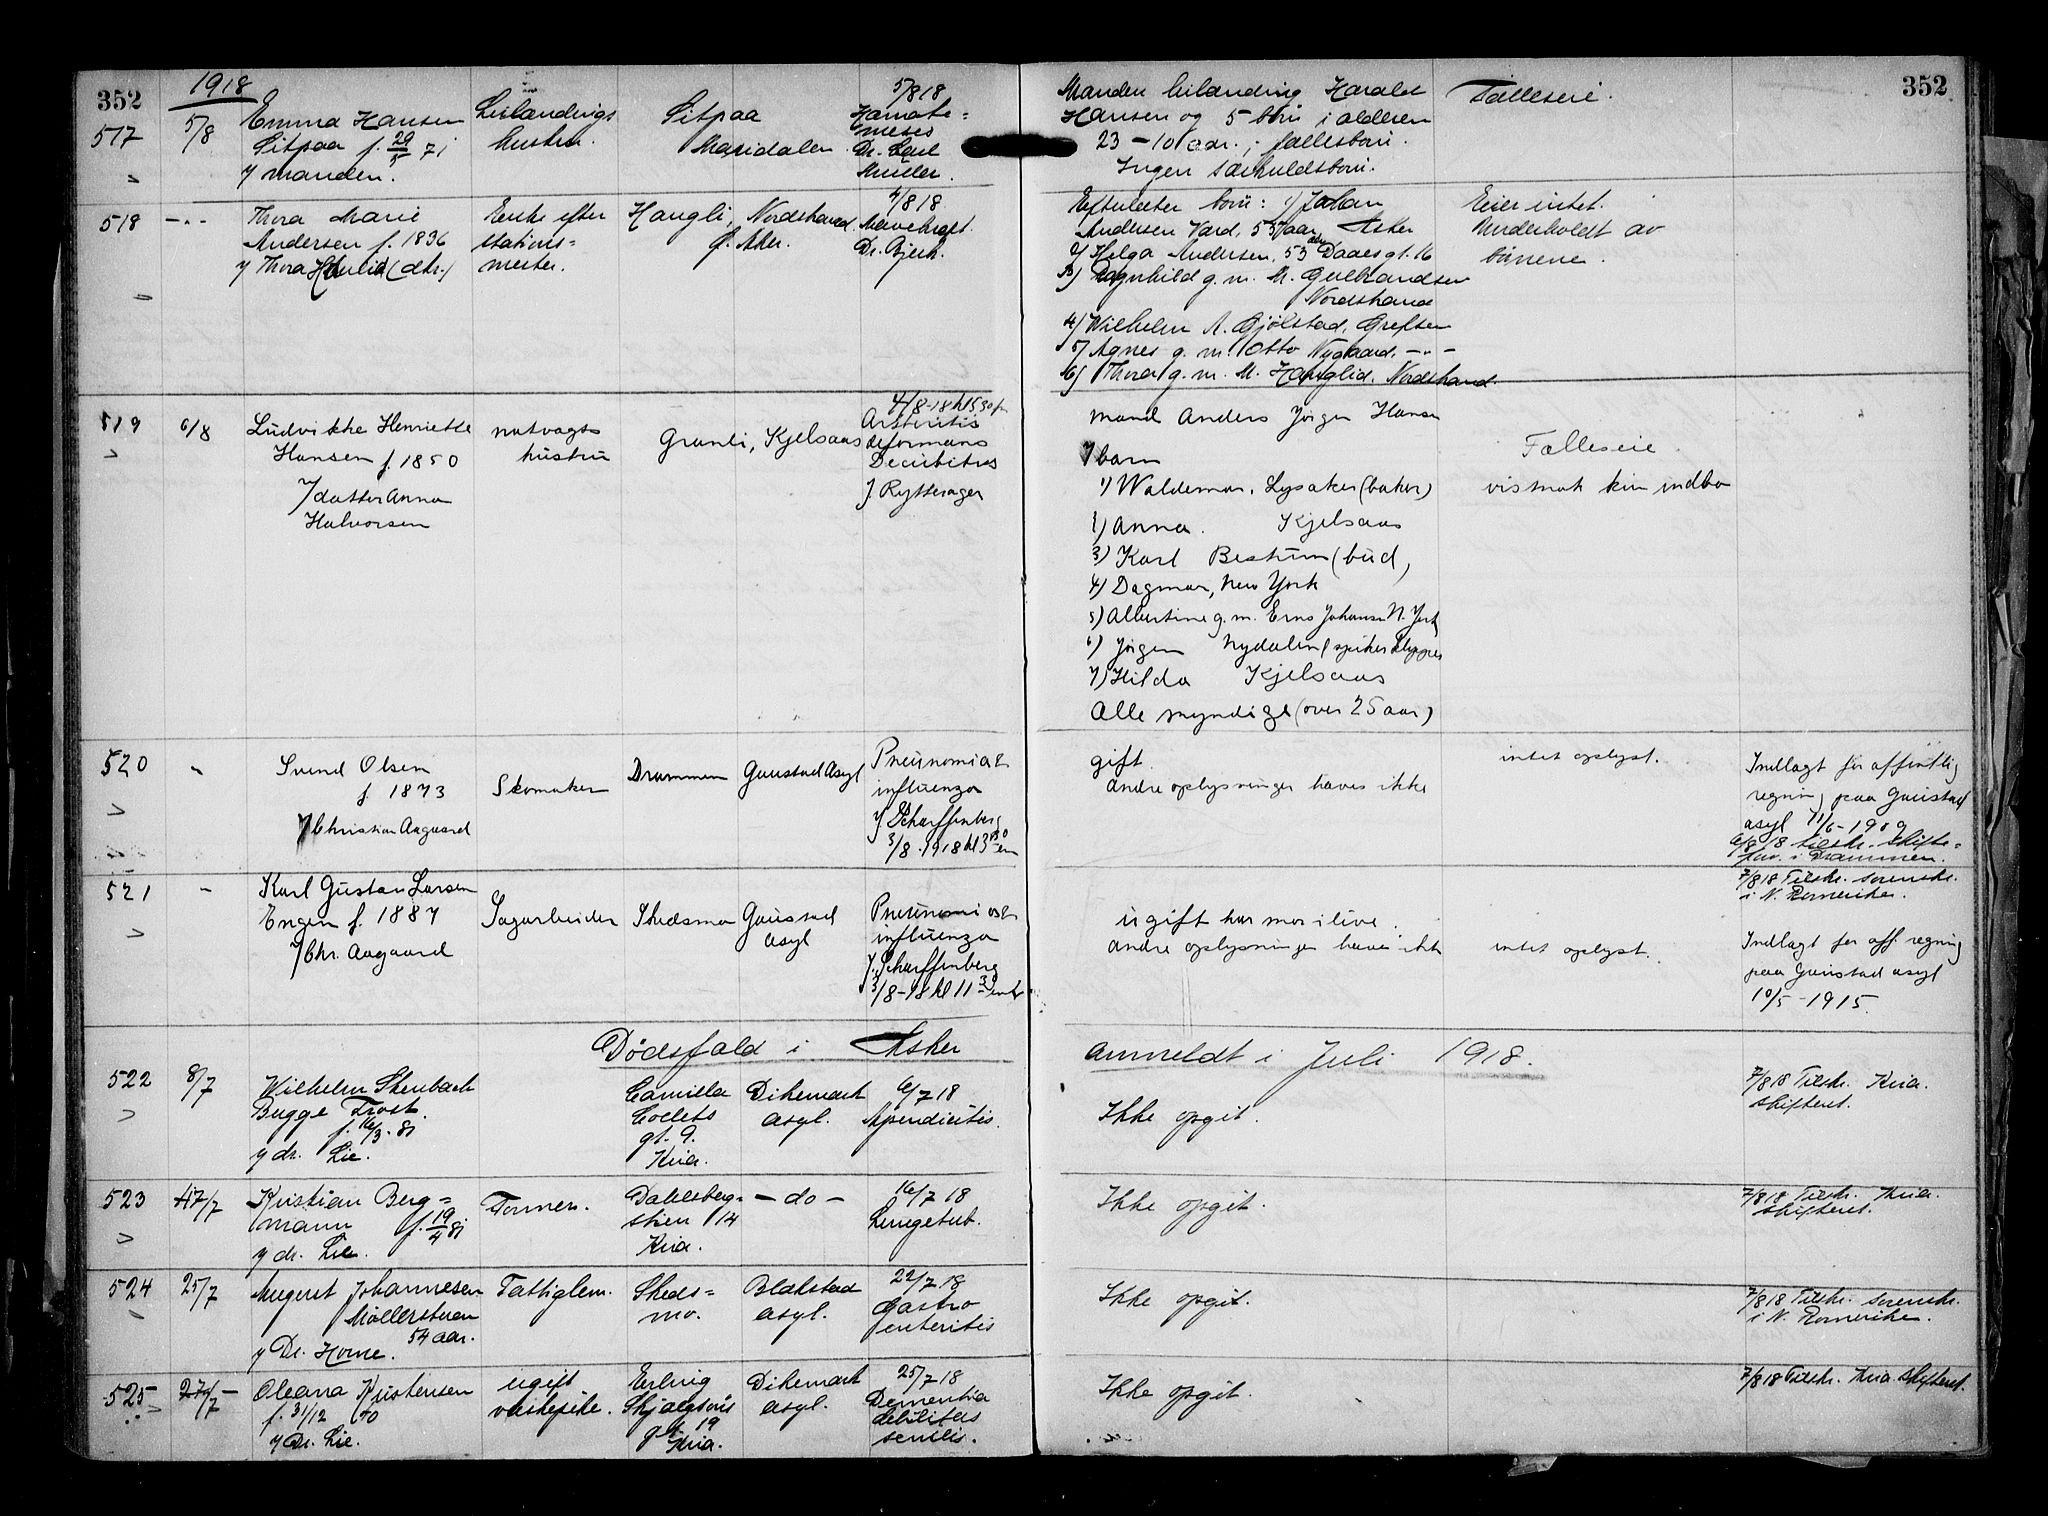 352
1918
517
5/8
Emma Hansen
Sitpaa f. 29/5 71
v/ manden.
Leilændings
hustru.
Sitpaa
Maridalen
5/8 18
Hæmate=
meses
Dr. Carl
Müller.
Manden leilænding Harald
Hansen og 5 børn i alderen
23 - 10 aar; fællesbørn.
Ingen særkuldsbørn.
Fælleseie.
352
518
- " -
Thora Marie
Andersen f. 1836
v/ Thora Hauglid (dtr.)
Enke efter
stations=
mester.
Haugli, Nordstrand
p. Aker.
4/8 18
Mavekræft.
Dr. Bjerk.
Efterlater børn: 1/ Johan
Andersen Vard, 55 aar, Asker
2/ Helga Andersen, 53 aar Daaesgt. 16
3/ Ragnhild g. m. M. Gulbrandsen
Nordstrand
4/ Wilhelm A. Gjölstad, Grefsen
5/ Agnes g. m. Otto Nygaard. - " -
6/ Thora g. m. M. Hauglid. Nordstrand.
Eier intet.
Underholdt av
børnene.
519
6/8
Ludvikke Henriette
Hansen f. 1850
v/ datter Anna
Halvorsen
natvagts
hustru
Granli, Kjelsaas
4/8-18 kl 5 30 fm
Artritis
deformans
Decubitus
v/ Rytterager
Mand Anders Jørgen Hansen
7 barn
1) Waldemar, Lysaker (baker)
2) Anna. Kjelsaas
3) Karl Bestum (bud,
4) Dagmar, New York
5) Albertine g. m. Erns Johansen N. York
6) Jørgen Nydalen (spikerklipper
7) Hilda Kjelsaas
Alle myndige (over 25 aar)
Fælleseie
visnok kun indbo
520
"
Svend Olsen
f. 1873
v/ Christian Aagaard
Skomaker
Drammen
Gaustad Asyl
Pneumonia &
influenza
v/ Scharffenberg
3/8 - 1918 kl 3 30 em
gift.
Andre oplysninger haves ikke
intet oplyst.
Indlagt for offentlig
regning paa Gaustad
asyl 11/6 - 1909
6/8 18 tilskr. skifte=
forv. i Drammen.
521
"
Karl Gustav Larsen
Engen f. 1887
v/ Chr. Aagaard
Sagarbeider
Skedsmo
Gaustad
asyl
Pneumonia &
influenza
v/ Scharffenberg
3/8-18 kl 11 30 nat
ugift har mor ilive.
Andre oplysninger haves ikke
intet oplyst.
7/8 18 Tilskr. sorenskr.
i N. Romerike.
Indlagt for off. regning
paa Gaustad asyl
10/5 - 1915.
Dödsfald i Asker
anmeldt i Juli 1918.
522
8/7
Wilhelm Stenbach
Bugge Frost.
f. 16/3. 81
v/ dr. Lie.
Camilla
Collets
gt. 9.
Kria.
Dikemark
asyl.
6/7 18
Apendicitis.
Ikke opgit.
7/8 18 Tilskr. Kria.
skifteret.
523
17/7
Kristian Berg=
mann f. 19/4 81
v/ dr. Lie.
Tömmerm.
Dahlsberg=
stien 14
Kria.
- do -
16/7 18
Lungetub.
Ikke opgit.
7/8 18 Tilskr. Kria.
skifteret.
524
25/7
August Johannesen
Møllerstuen
54 aar.
v/ Dr. Horne.
Fattiglem.
Skeds=
mo.
Blakstad
asyl.
22/7 18
Gastro
enteritis
Ikke opgit.
7/8 18 Tilskr. sorenskr.
i N. Romerike.
525
27/7
Oleana Kristensen
f. 31/12 40
v/ Dr. Lie.
ugift
vaskepike.
Erling
Skjalgsøns
gt 19
Kria.
Dikemark
asyl.
25/7 18
Dementia
debilitas
senilis.
Ikke opgit.
7/8 18 Tilskr. Kria skifteret.